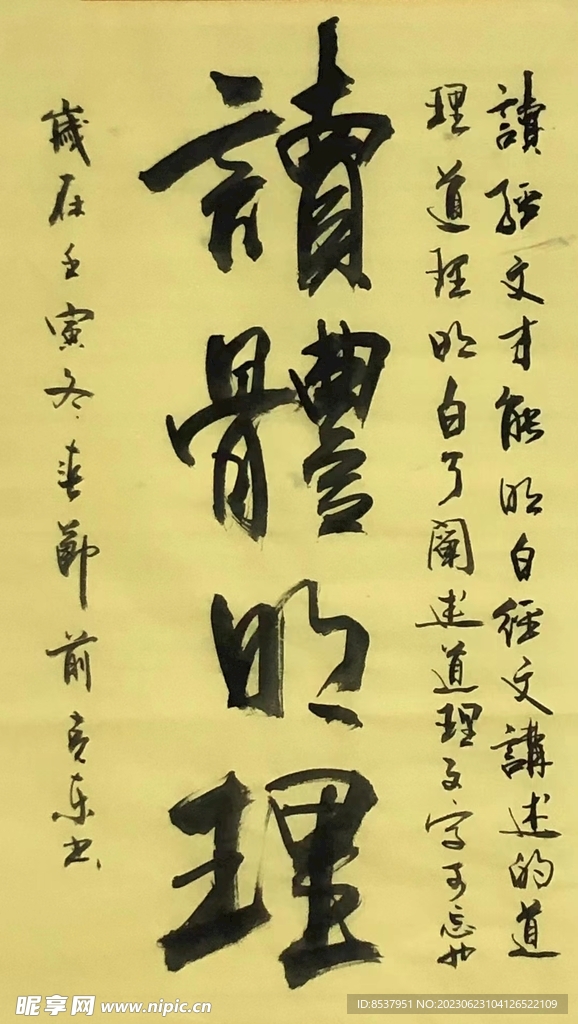 讀經文才能明白經文講述的道
理道理明白了闡述道理文字可忘也
讀體明理
歲在壬寅冬春節前亮東书
昵享网 www.nipic.cn
ID:8537951 NO:20230623104126522109